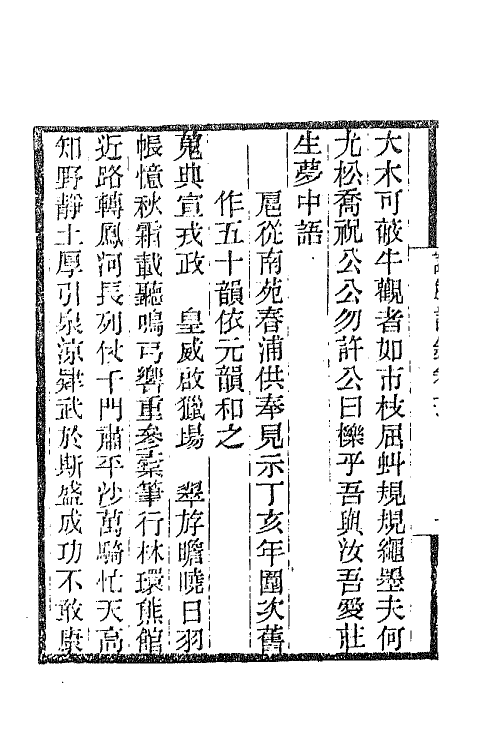 大木可蔽牛觀者如市枝屈蚪規規繩墨夫何
尤松喬祝公公勿許公曰櫟乎吾與汝吾愛莊
生夢中語
扈從南苑春浦供奉見示丁亥年圍次舊
作五十韻依元韻和之
蒐典宣戎政　皇威啟獵場　翠斿瞻曉日羽
帳憶秋霜載聽鳴弓響重參橐筆行林環熊館
近路轉鳳河長列仗千門肅平沙萬騎忙天高
知野靜土厚引泉涼肄武於斯盛成功不敢康